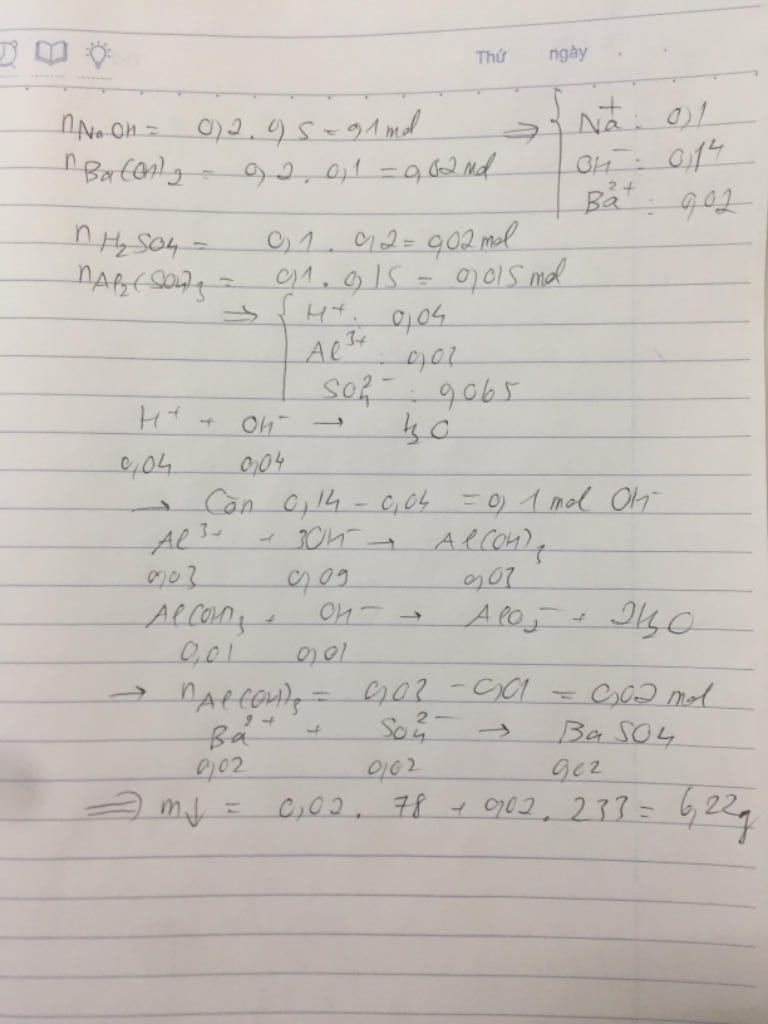 Thứ ngày . .
nNaOH = 0,2 . 0,5 = 0,1 mol ⇒ { Na+ : 0,1
nBa(OH)2 = 0,2 . 0,1 = 0,02 mol OH− : 0,14
Ba2+ : 0,02
nH2SO4 = 0,1 . 0,2 = 0,02 mol
nAl2(SO4)3 = 0,1 . 0,15 = 0,015 mol
⇒ { H+ : 0,04
Al3+ : 0,03
SO42− : 0,065
H+ + OH− → H2O
0,04 0,04
→ Còn 0,14 − 0,04 = 0,1 mol OH−
Al3+ + 3OH− → Al(OH)3
0,03 0,09 0,03
Al(OH)3 + OH− → AlO2− + 2H2O
0,01 0,01
→ nAl(OH)3 = 0,03 − 0,01 = 0,02 mol
Ba2+ + SO42− → BaSO4
0,02 0,02 0,02
⇒ m↓ = 0,02 . 78 + 0,02 . 233 = 6,22g